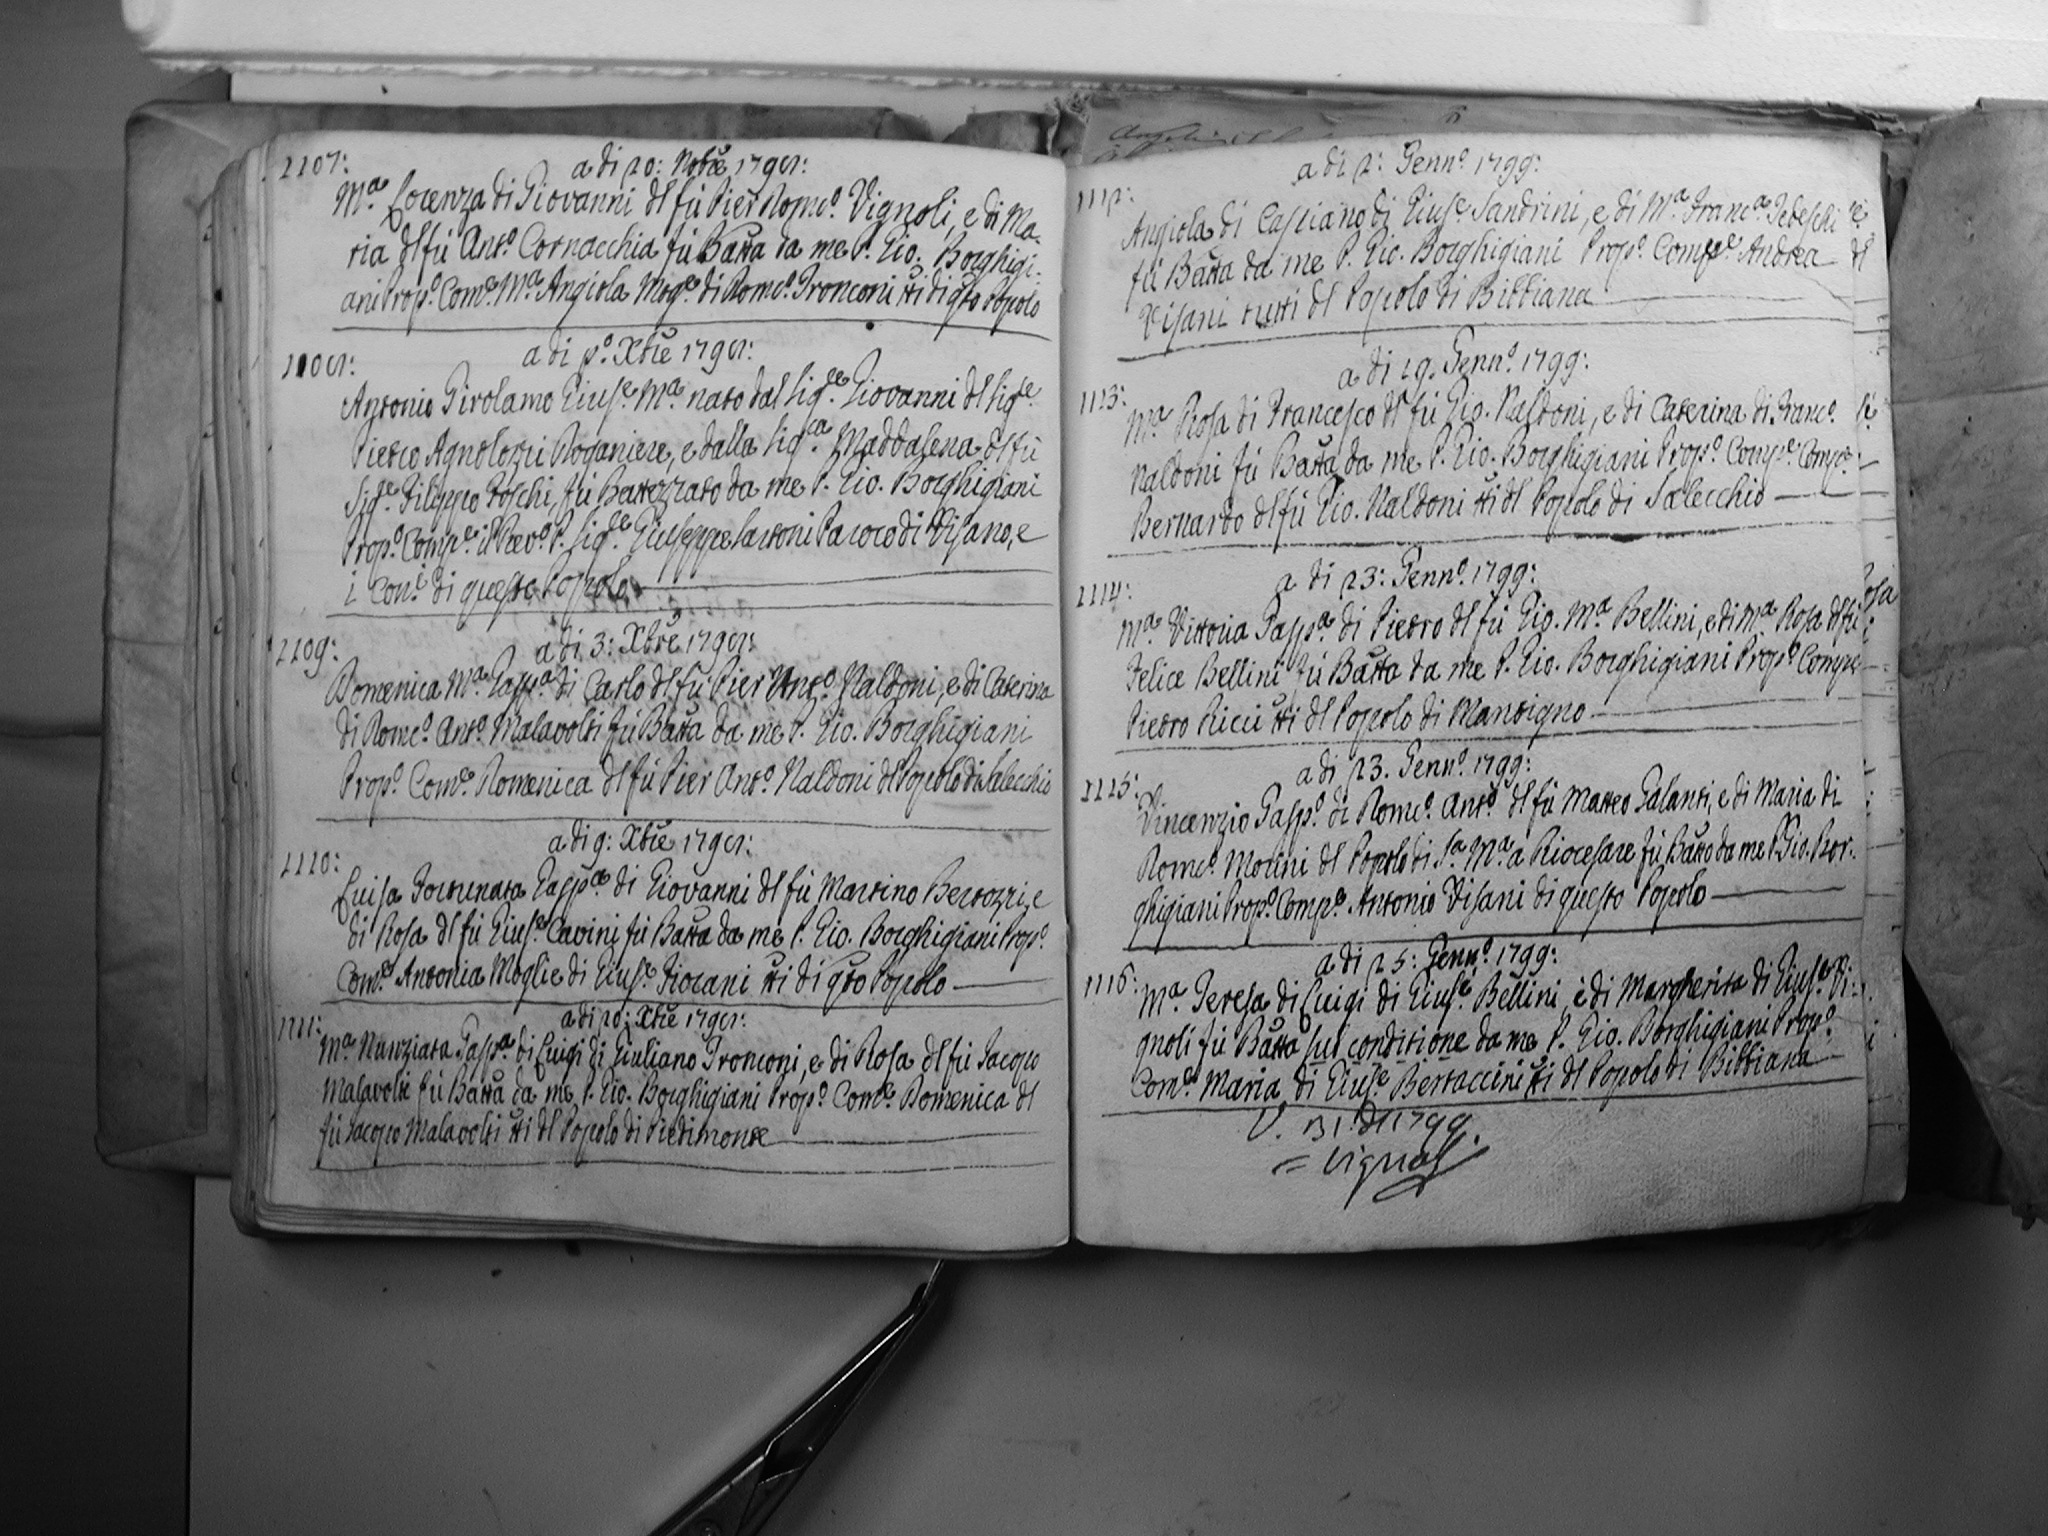 1107:
a di 20: Nobre 1798:
Mª Lorenza di Giovanni dl fù Pier Domcº Vignoli, e di Ma-
ria dl fù Antº Cornacchia fù Batta da me P. Gio. Borghigi-
ani Propº Comᵉ Mª Angiola Mogᵉ di Domcº Tronconi tti di qto Popolo
1108:
a di pº Xbre 1798:
Antonio Girolamo Giusᵉ Mª nato dal Sigʳᵉ Giovanni dl Sigʳᵉ
Pietro Agnolozzi Doganiere, e dalla Sigʳᵃ Maddalena dl fù
Sigʳᵉ Filippo Foschi, fù Battezzato da me P. Gio. Borghigiani
Propº Compᵉ il Revº P. Sigʳᵉ Giuseppe Sartoni Paroco di Visano, e
i Conⁱ di questo Popolo
1109:
a di 3: Xbre 1798:
Domenica Mª Gaspª di Carlo dl fù Pier Antº Naldoni, e di Caterina
di Domcº Antº Malavolti fù Batta da me P. Gio. Borghigiani
Propº Comᵉ Domenica dl fù Pier Antº Naldoni dl Popolo di Salecchio
1110:
a di 9: Xbre 1798:
Luisa Fortunata Gaspª di Giovanni dl fù Martino Bertozzi, e
di Rosa dl fù Giusᵉ Cavini fù Batta da me P. Gio. Borghigiani Propº
Comᵉ Antonia Moglie di Giusᵉ Fiorani tti di qto Popolo
1111:
a di 20: Xbre 1798:
Mª Nunziata Gaspª di Luigi di Giuliano Tronconi, e di Rosa dl fù Jacopo
Malavolti fù Batta da me P. Gio. Borghigiani Propº Comᵉ Domenica dl
fù Jacopo Malavolti tti dl Popolo di Piedimonte
a di 2: Gennº 1799:
1112:
Angiola di Cassiano di Giusᵉ Sandrini, e di Mª Francª Tedeschi
fù Batta da me P. Gio. Borghigiani Propº Compᵉ Andrea
Visani tutti dl Popolo di Bibbiana
a di 19. Gennº 1799:
1113:
Mª Rosa di Francesco dl fù Gio. Naldoni, e di Caterina di Francº
Naldoni fù Batta da me P. Gio. Borghigiani Propº Compᵉ Compᵉ
Bernardo dl fù Gio. Naldoni tti dl Popolo di Salecchio
a di 23: Gennº 1799:
1114:
Mª Vittoria Gaspª di Pietro dl fù Gio. Mª Bellini, e di Mª Rosa dl fù
Felice Bellini fù Batta da me P. Gio. Borghigiani Propº Compe
Pietro Ricci tti dl Popolo di Mantigno
a di 23. Gennº 1799:
1115:
Vincenzio Gaspº di Domcº Antº dl fù Matteo Galanti, e di Maria di
Domcº Morini dl Popolo di Sª Mª a Riocesare fù Batto da me P. Gio. Bor-
ghigiani Propº Compᵉ Antonio Visani di questo Popolo
a di 25: Gennº 1799:
1116:
Mª Teresa di Luigi di Giusᵉ Bellini, e di Margherita di Giusᵉ Vi-
gnoli fù Batta sub conditione da me P. Gio. Borghigiani Propº
Comᵉ Maria di Giusᵉ Bertaccini tti dl Popolo di Bibbiana